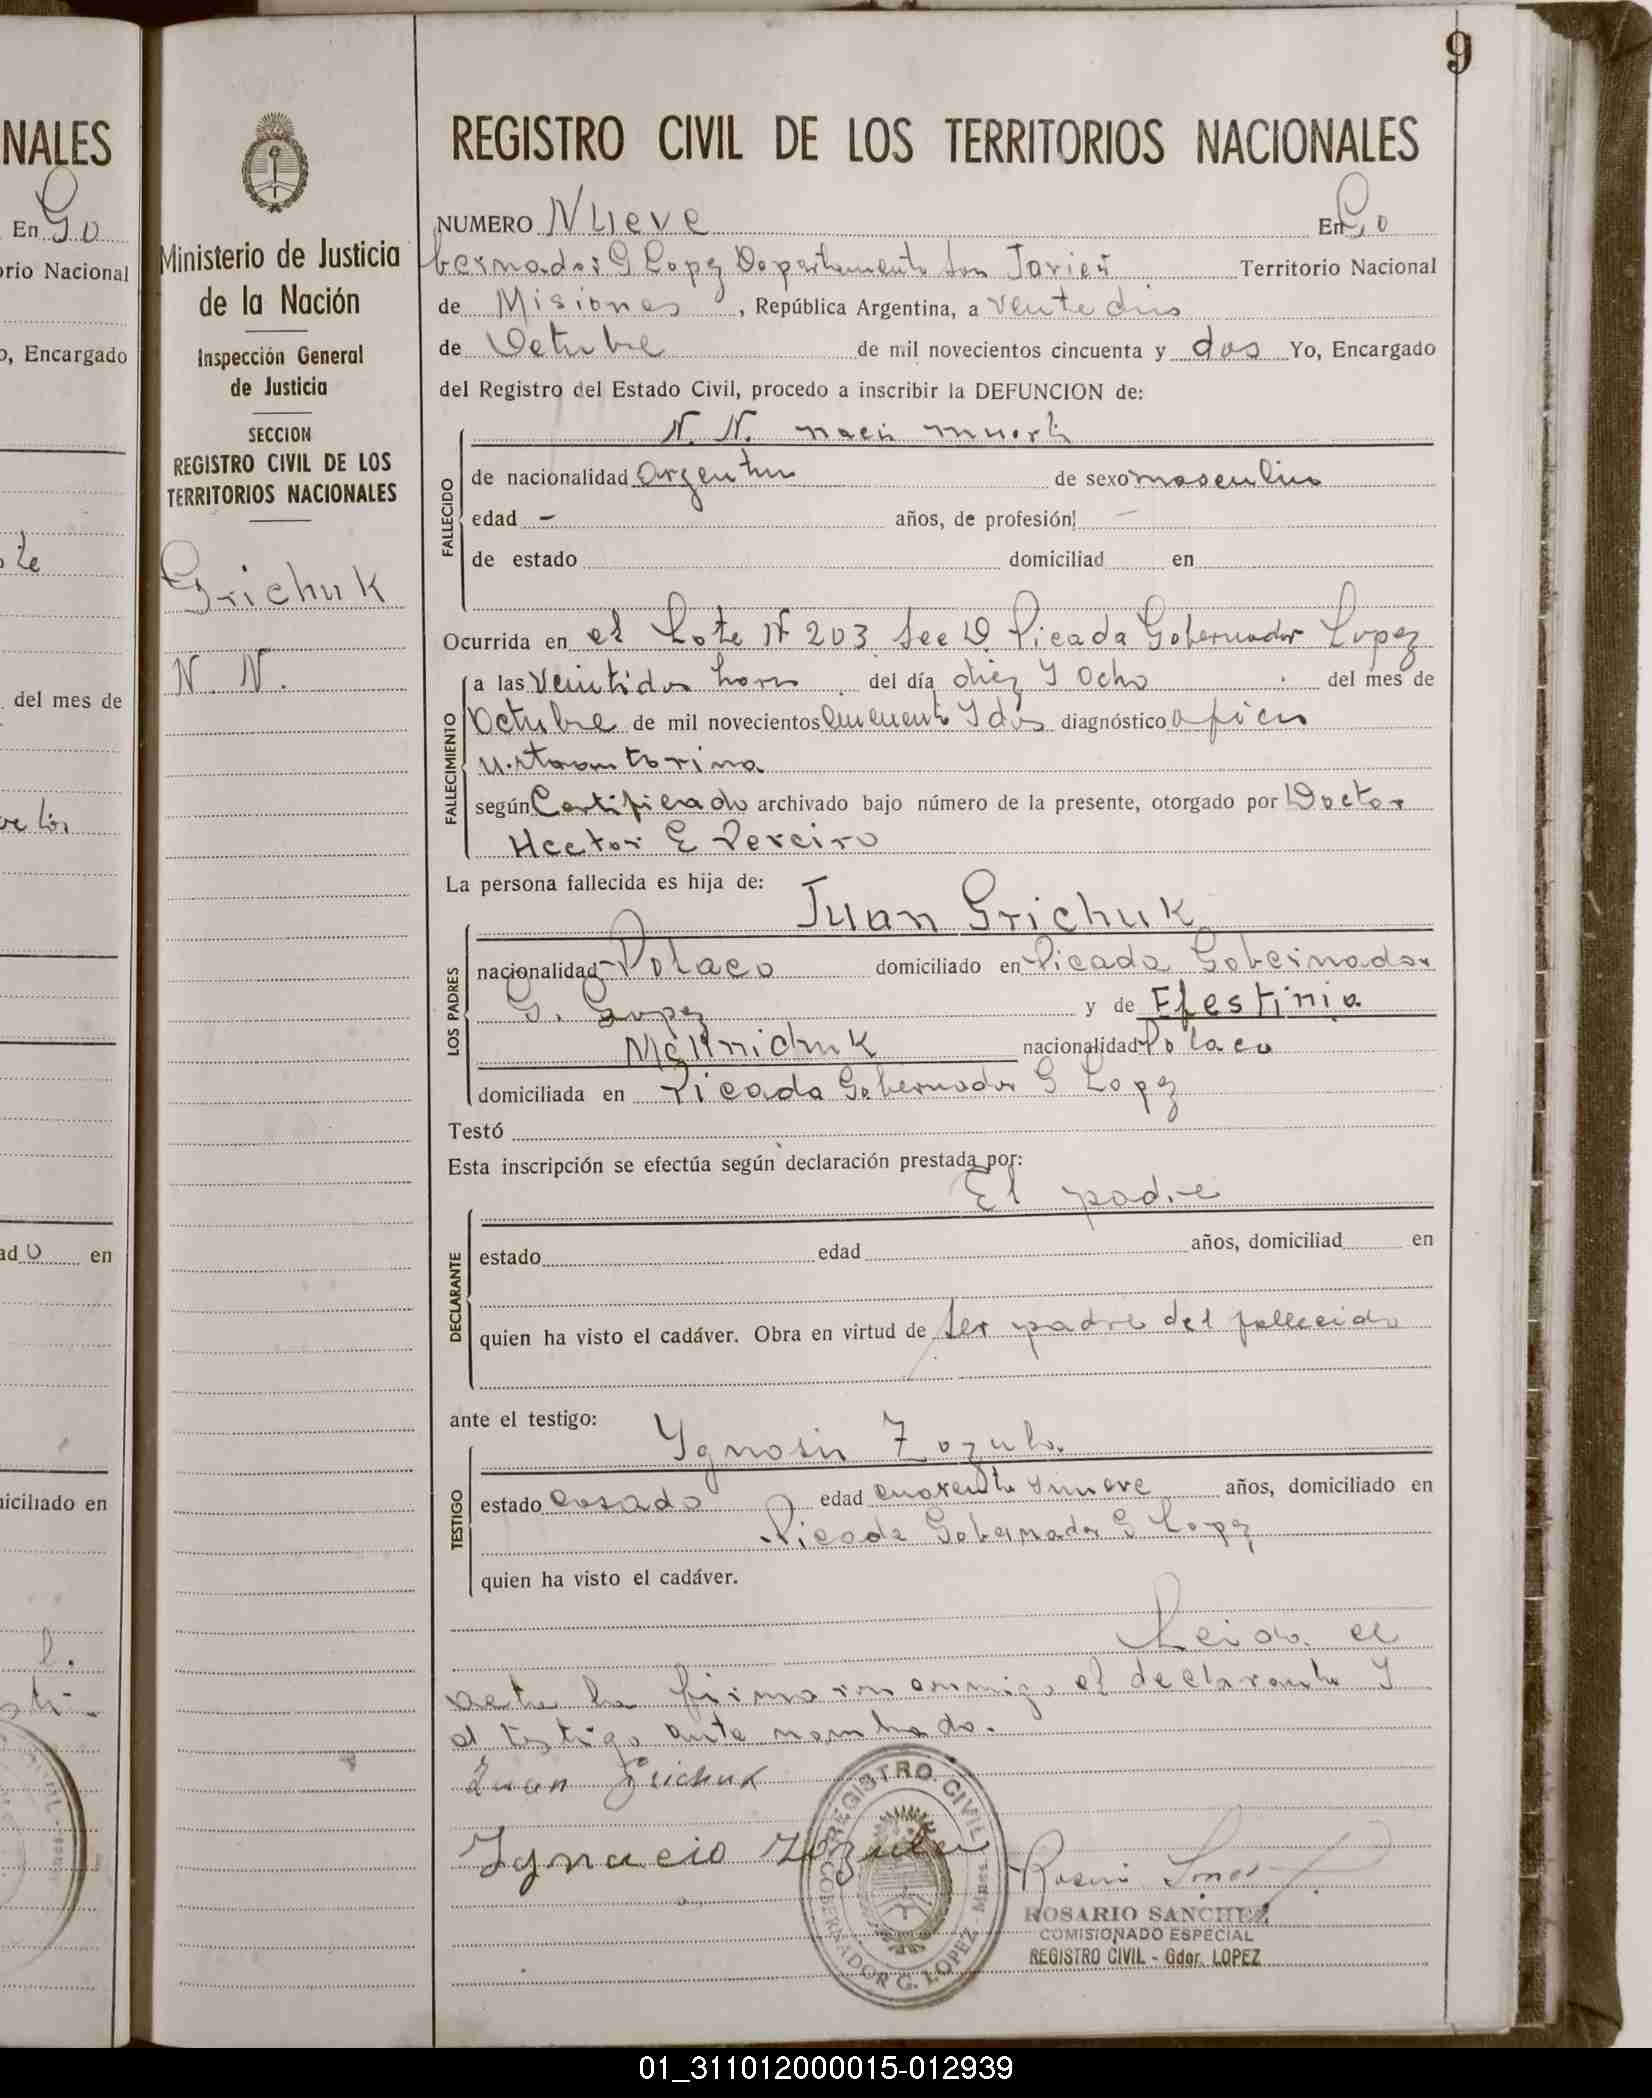 9
NALES
En Go
orio Nacional
o, Encargado
del mes de
ad o en
niciliado en
Ministerio de Justicia
de la Nación
Inspección General
de Justicia
SECCION
REGISTRO CIVIL DE LOS
TERRITORIOS NACIONALES
Grichuk
N. N.
REGISTRO CIVIL DE LOS TERRITORIOS NACIONALES
NUMERO Nueve En Go
bernador G Lopez Departamento San Javier Territorio Nacional
de Misiones, República Argentina, a
de Octubre de mil novecientos cincuenta y dos Yo, Encargado
del Registro del Estado Civil, procedo a inscribir la DEFUNCION de:
N. N. naci muerto
FALLECIDO
de nacionalidad argentino de sexo masculino
edad - años, de profesión -
de estado domiciliad en
Ocurrida en el Lote Nº 203 Sec D. Picada Gobernador Lopez
FALLECIMIENTO
a las Veintidos horas del día diez y Ocho del mes de
Octubre de mil novecientos cincuenta y dos diagnóstico
según Certificado archivado bajo número de la presente, otorgado por Doctor
Hector E Pereiro
La persona fallecida es hija de:
Juan Grichuk
LOS PADRES
nacionalidad Polaco domiciliado en Picada Gobernador
G. Lopez y de Efestinia
Melinichuk nacionalidad Polaco
domiciliada en Picada Gobernador G Lopez
Testó
Esta inscripción se efectúa según declaración prestada por:
El padre
DECLARANTE
estado edad años, domiciliad en
quien ha visto el cadáver. Obra en virtud de ser padre del fallecido
ante el testigo:
Ygnosio Zozula
TESTIGO
estado casado edad cuarenta y nueve años, domiciliado en
Picada Gobernador G Lopez
quien ha visto el cadáver.
Leida el
acta la firmaron conmigo el declarante y
el testigo ante nombrado.
Juan Grichuk
Ygnacio Zozula
REGISTRO CIVIL
GOBERNADOR G. LOPEZ - Mnes.
ROSARIO SANCHEZ
COMISIONADO ESPECIAL
REGISTRO CIVIL - Gdor. LOPEZ
01_311012000015-012939